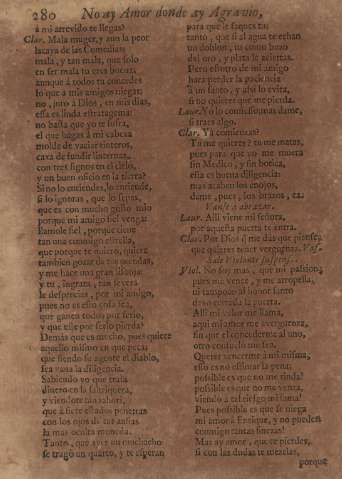 280 No ay Amor donde ay Agravio,
à mi atrevido te llegas?
Clar. Mala muger, y aun la peor
lacaya de las Comedias:
mala, y tan mala, que solo
en ser mala tu eres buena;
aunque à todos tu concedes
lo que à mis amigos niegas;
no, juro à Dios, en mis dias,
essa es linda estratagema:
no basta que yo te sufra,
el que hagas à mi cabeza
molde de vaciar tinteros,
caxa de fundir linternas,
con tres signos en el cielo,
y un buen oficio en la tierra?
Si no lo entiendes, lo entiende,
si lo ignoras, que lo sepas,
que es con mucho gusto mio
porque mi amigo fiel venga:
llamole fiel, porque tiene
tan una conmigo estrella,
que porque te quiero, quiere
tambien gozar de tus prendas,
y me hace una gran lisonja:
y tu, ingrata, tan severa
le desprecias, por mi amigo,
pues no es esso cosa fea,
que ganen todos por serlo,
y que el por serlo pierda?
Demàs que es mucho, pues quiere
aquello mismo en que peca:
que siendo se agoste el diablo,
sea vana la diligencia.
Sabiendo yo que traia
dinero en la faltriquera,
y viendote tan zahorì,
que à siete estados penetras
con los ojos de tus ansias
la mas oculta moneda.
Tanto, que ayer un muchacho
se tragò un quarto, y te esperan
para que le saques tu:
tanto, que si al agua te echan
un doblon, tu como buzo
del oro, y plata le aciertas.
Pero essotro de mi amigo
harà perder la paciencia
à un santo, y assi lo evita,
si no quieres que me pierda.
Laur. No lo conseguiràs dame,
si traes algo.
Clar. Yà comienzas?
Tu me quieres? tu me matas,
pues para que yo me muera
sin Medico, y sin botica,
essa es buena diligencia:
mas acaben los enojos,
dame, pues, los brazos, ea.
Vanse à abrazar.
Laur. Alli viene mi señora,
por aquella puerta te entra.
Clar. Por Dios que me das que piense,
que quieres tener verguenza. Vas.
Sale Violante suspens.
Viol. No soy mas, que mi passion,
pues me vence, y me atropella,
ni tampoco al honor santo
dexo cerrada la puerta.
Alli mi valor me llama,
aqui mi amor me averguenza,
sin que el concederme al uno,
otro consuelo me sea.
Querer vencerme à mi misma,
esso es no estimar la pena:
possible es que no me rinda?
possible es que no me venza,
viendo à tal riesgo mi fama?
Pues possible es que se niega
mi amor à Enrique, y no pueden
conmigo tantas finezas?
Mas ay amor, que te pierdes,
si con las dudas te mezclas,
porque